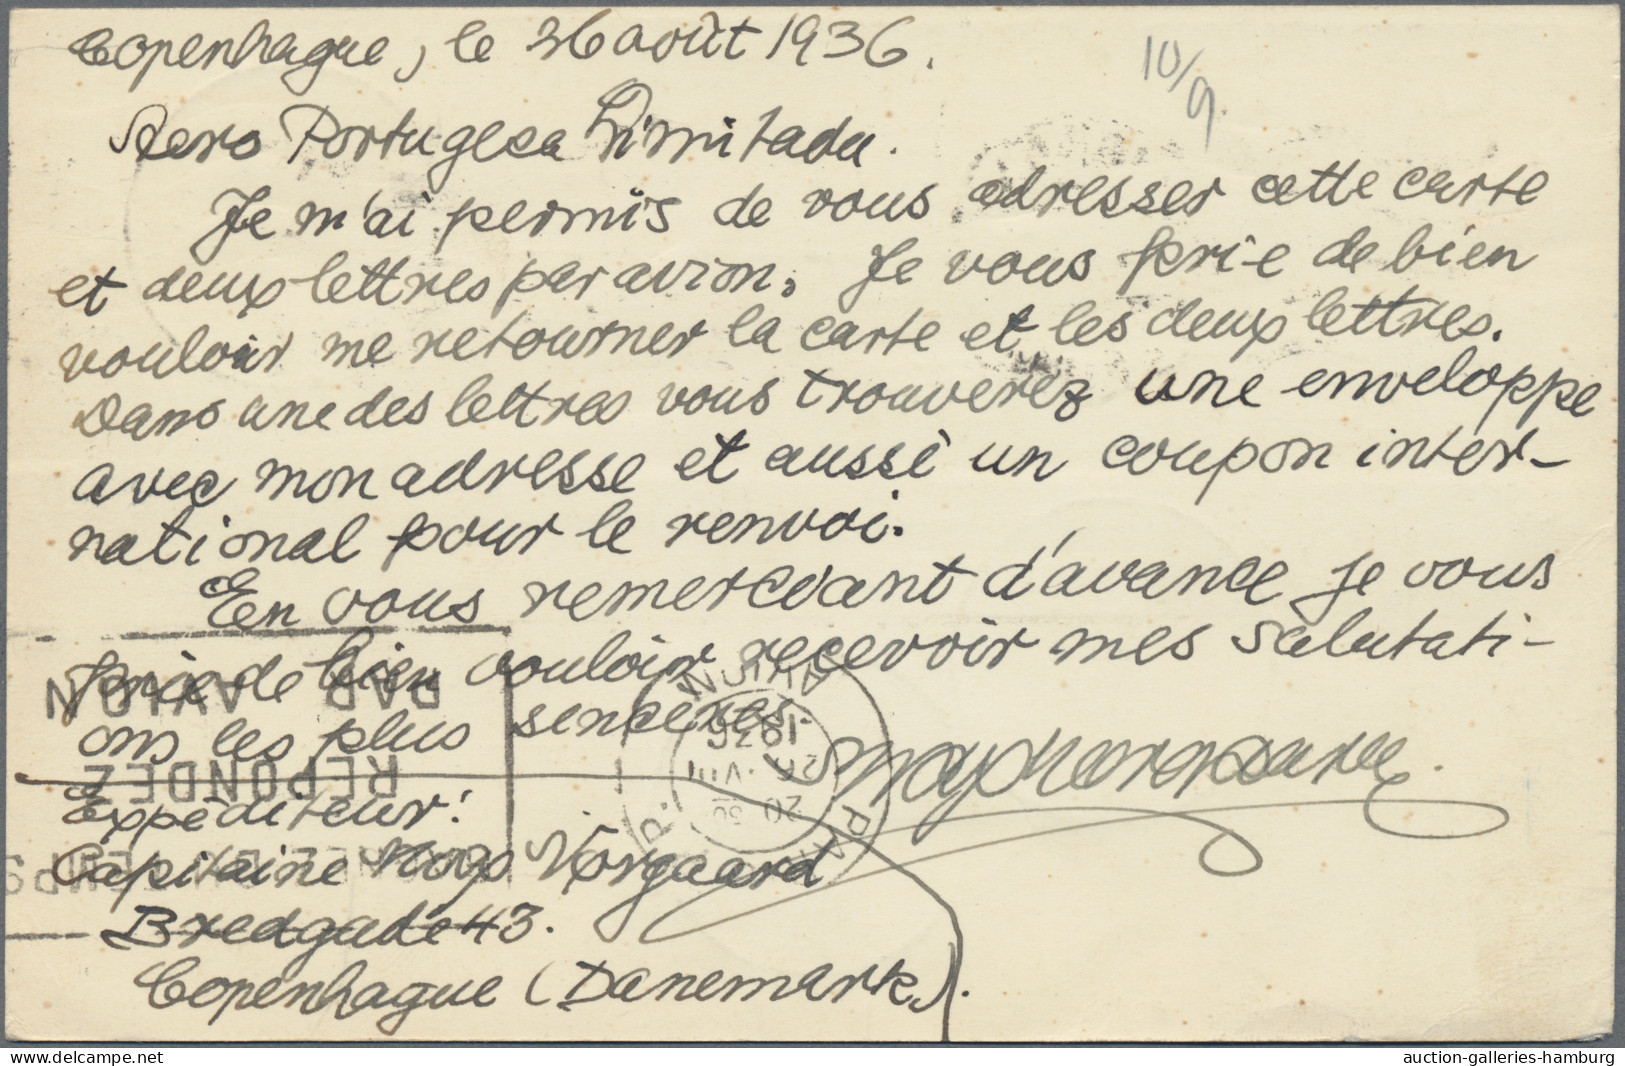 Copenhague, le 26 août 1936.
10/9.
Aero Portugesa Limitada.
Je m'ai permis de vous adresser cette carte
et deux lettres par avion. Je vous prie de bien
vouloir me retourner la carte et les deux lettres.
Dans une des lettres vous trouverez une enveloppe
avec mon adresse et aussi un coupon inter-
national pour le renvoi.
En vous remerciant d'avance je vous
prie de bien vouloir recevoir mes salutati-
ons les plus sencères.
PAR AVION
REPONDEZ
AVION
1936
Expéditeur:
Capitaine Vorgaard
Bredgade 43.
Copenhague (Danemark).
delcampe.net
auction-galleries-hamburg